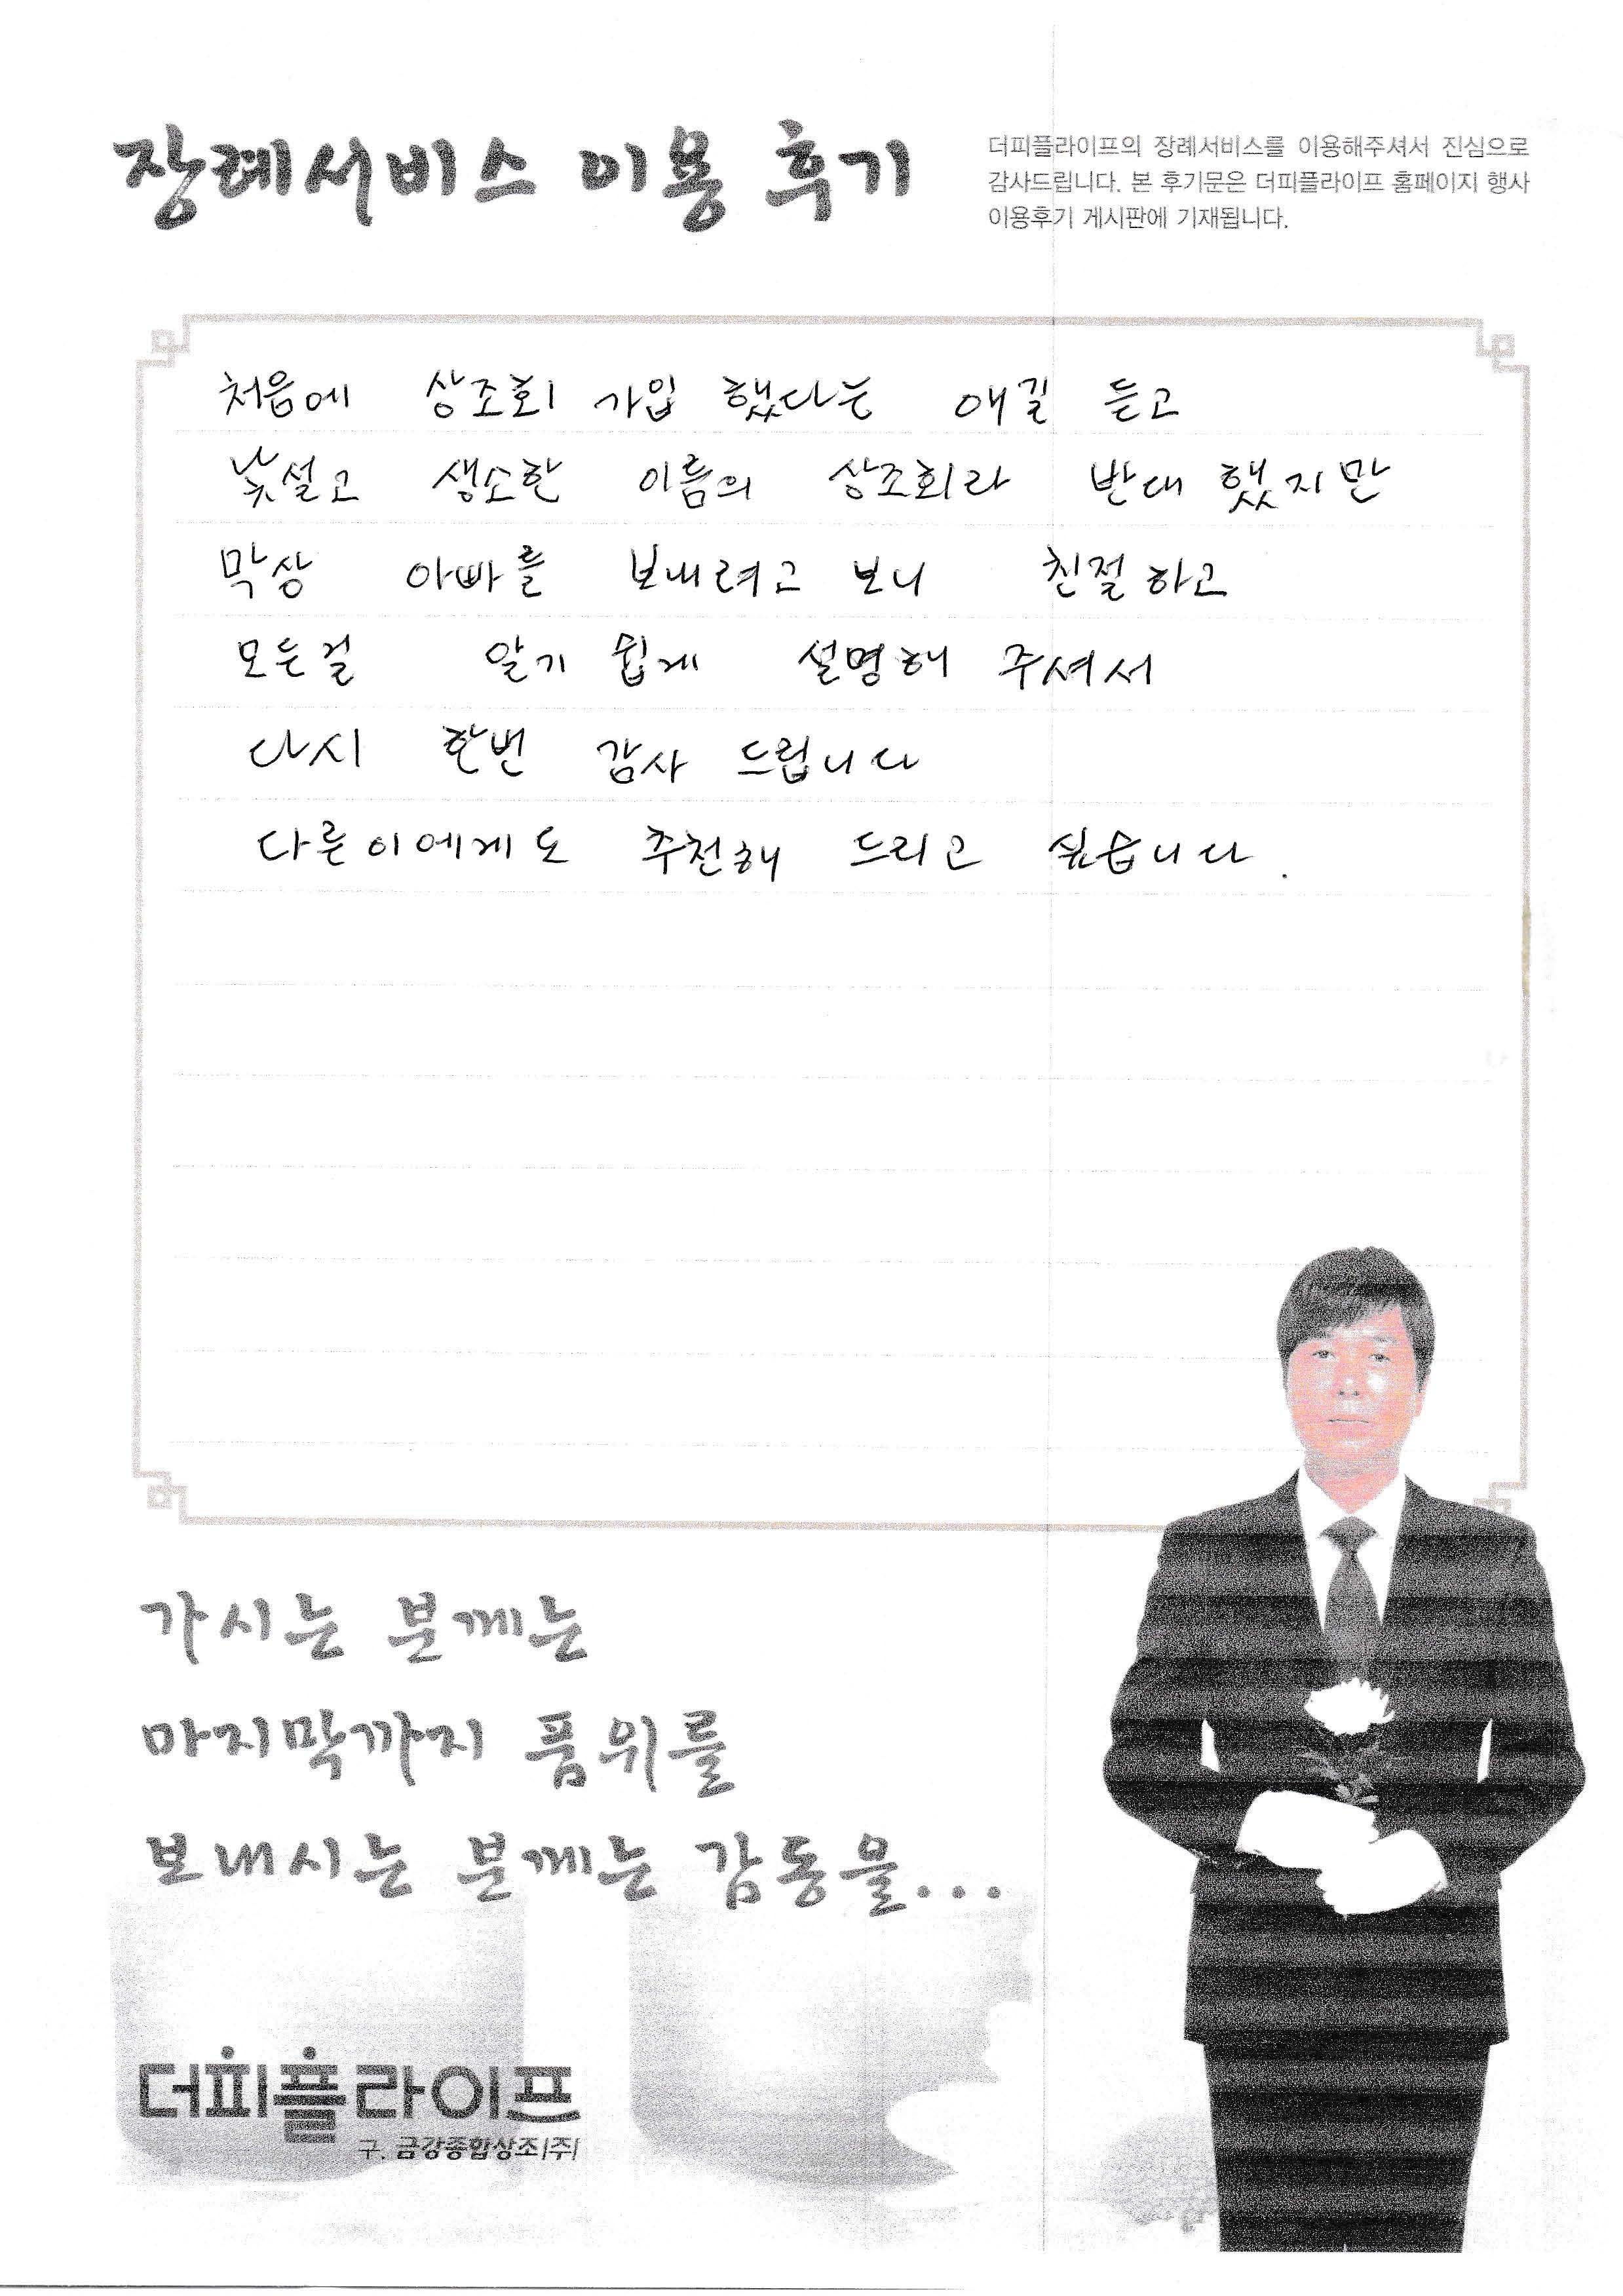 장례서비스 이용 후기
더피플라이프의 장례서비스를 이용해주셔서 진심으로
감사드립니다. 본 후기문은 더피플라이프 홈페이지 행사
이용후기 게시판에 기재됩니다.
처음에 상조회 가입 했다는 얘길 듣고
낯설고 생소한 이름의 상조회라 반대 했지만
막상 아빠를 보내려고 보니 친절하고
모든걸 알기 쉽게 설명해 주셔서
다시 한번 감사 드립니다
다른이에게도 추천해 드리고 싶습니다.
가시는 분께는
마지막까지 품위를
보내시는 분께는 감동을...
더피플라이프
구. 금강종합상조(주)